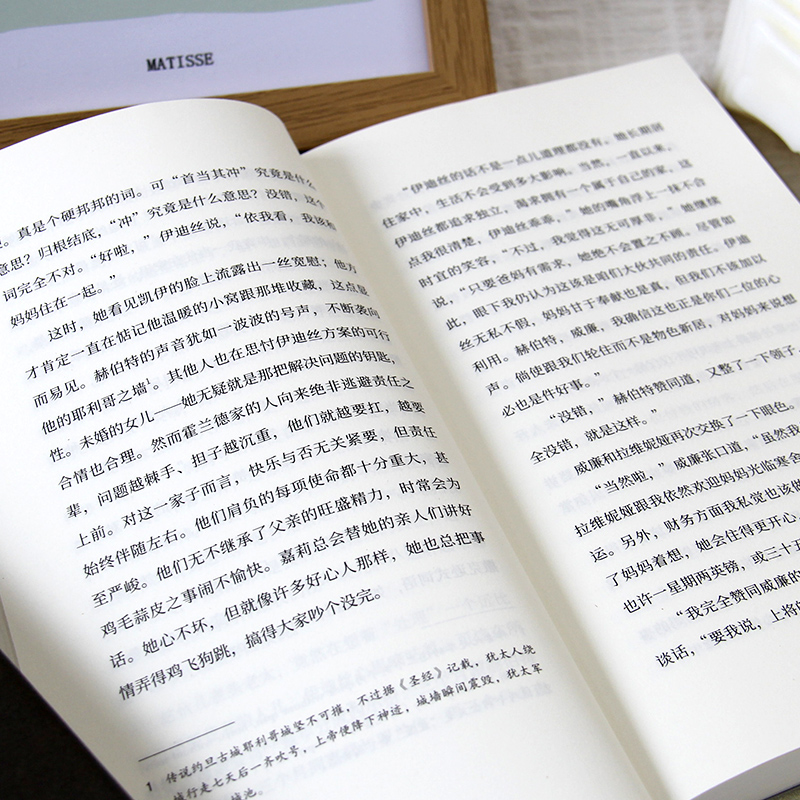 MATISSE
。真是个硬邦邦的词。可“首当其冲”究竟是什么
意思？归根结底，“冲”究竟是什么意思？没错，这个
词完全不对。“好啦，”伊迪丝说，“依我看，我该和
妈妈住在一起。”
这时，她看见凯伊的脸上流露出一丝宽慰；他方
才肯定一直在惦记他温暖的小窝跟那堆收藏，这点显
而易见。赫伯特的声音犹如一波波的号声，不断袭向
他的耶利哥之墙¹。其他人也在思忖伊迪丝方案的可行
性。未婚的女儿——她无疑就是那把解决问题的钥匙，
合情也合理。然而霍兰德家的人向来绝非逃避责任之
辈，问题越棘手、担子越沉重，他们就越要扛，越要
上前。对这一家子而言，快乐与否无关紧要，但责任
始终伴随左右。他们肩负的每项使命都十分重大，甚
至严峻。他们无不继承了父亲的旺盛精力，时常会为
鸡毛蒜皮之事闹不愉快。嘉莉总会替她的亲人们讲好
话。她心不坏，但就像许多好心人那样，她也总把事
情弄得鸡飞狗跳，搞得大家吵个没完。
1 传说约旦古城耶利哥城坚不可摧，不过据《圣经》记载，犹太人绕
城行走七天后一齐吹号，上帝便降下神迹，城墙瞬间震毁，犹太军
城池。
“伊迪丝的话不是一点儿道理都没有。她长期居
住家中，生活不会受到多大影响。当然，一直以来，
伊迪丝都追求独立，渴求拥有一个属于自己的家，这
点我很清楚，伊迪丝乖乖，”她的嘴角浮上一抹不合
时宜的笑容，“不过，我觉得这无可厚非，”她继续
说，“只要爸妈有需求，她绝不会置之不顾，尽管如
此，眼下我仍认为这该是咱们大伙共同的责任。伊迪
丝无私不假，妈妈甘于奉献也是真，但我们不该加以
利用。赫伯特，威廉，我确信这也正是你们二位的心
声。倘使跟我们轮住而不是物色新居，对妈妈来说想
必也是件好事。”
“没错，”赫伯特赞同道，又整了一下领子，
全没错，就是这样。”
威廉和拉维妮娅再次交换了一下眼色。
“当然啦，”威廉张口道，“虽然我
拉维妮娅跟我依然欢迎妈妈光临寒舍
运。另外，财务方面我私觉也该做
了妈妈着想，她会住得更开心，
也许一星期两英镑，或三十五
“我完全赞同威廉的
谈话，“要我说，上将